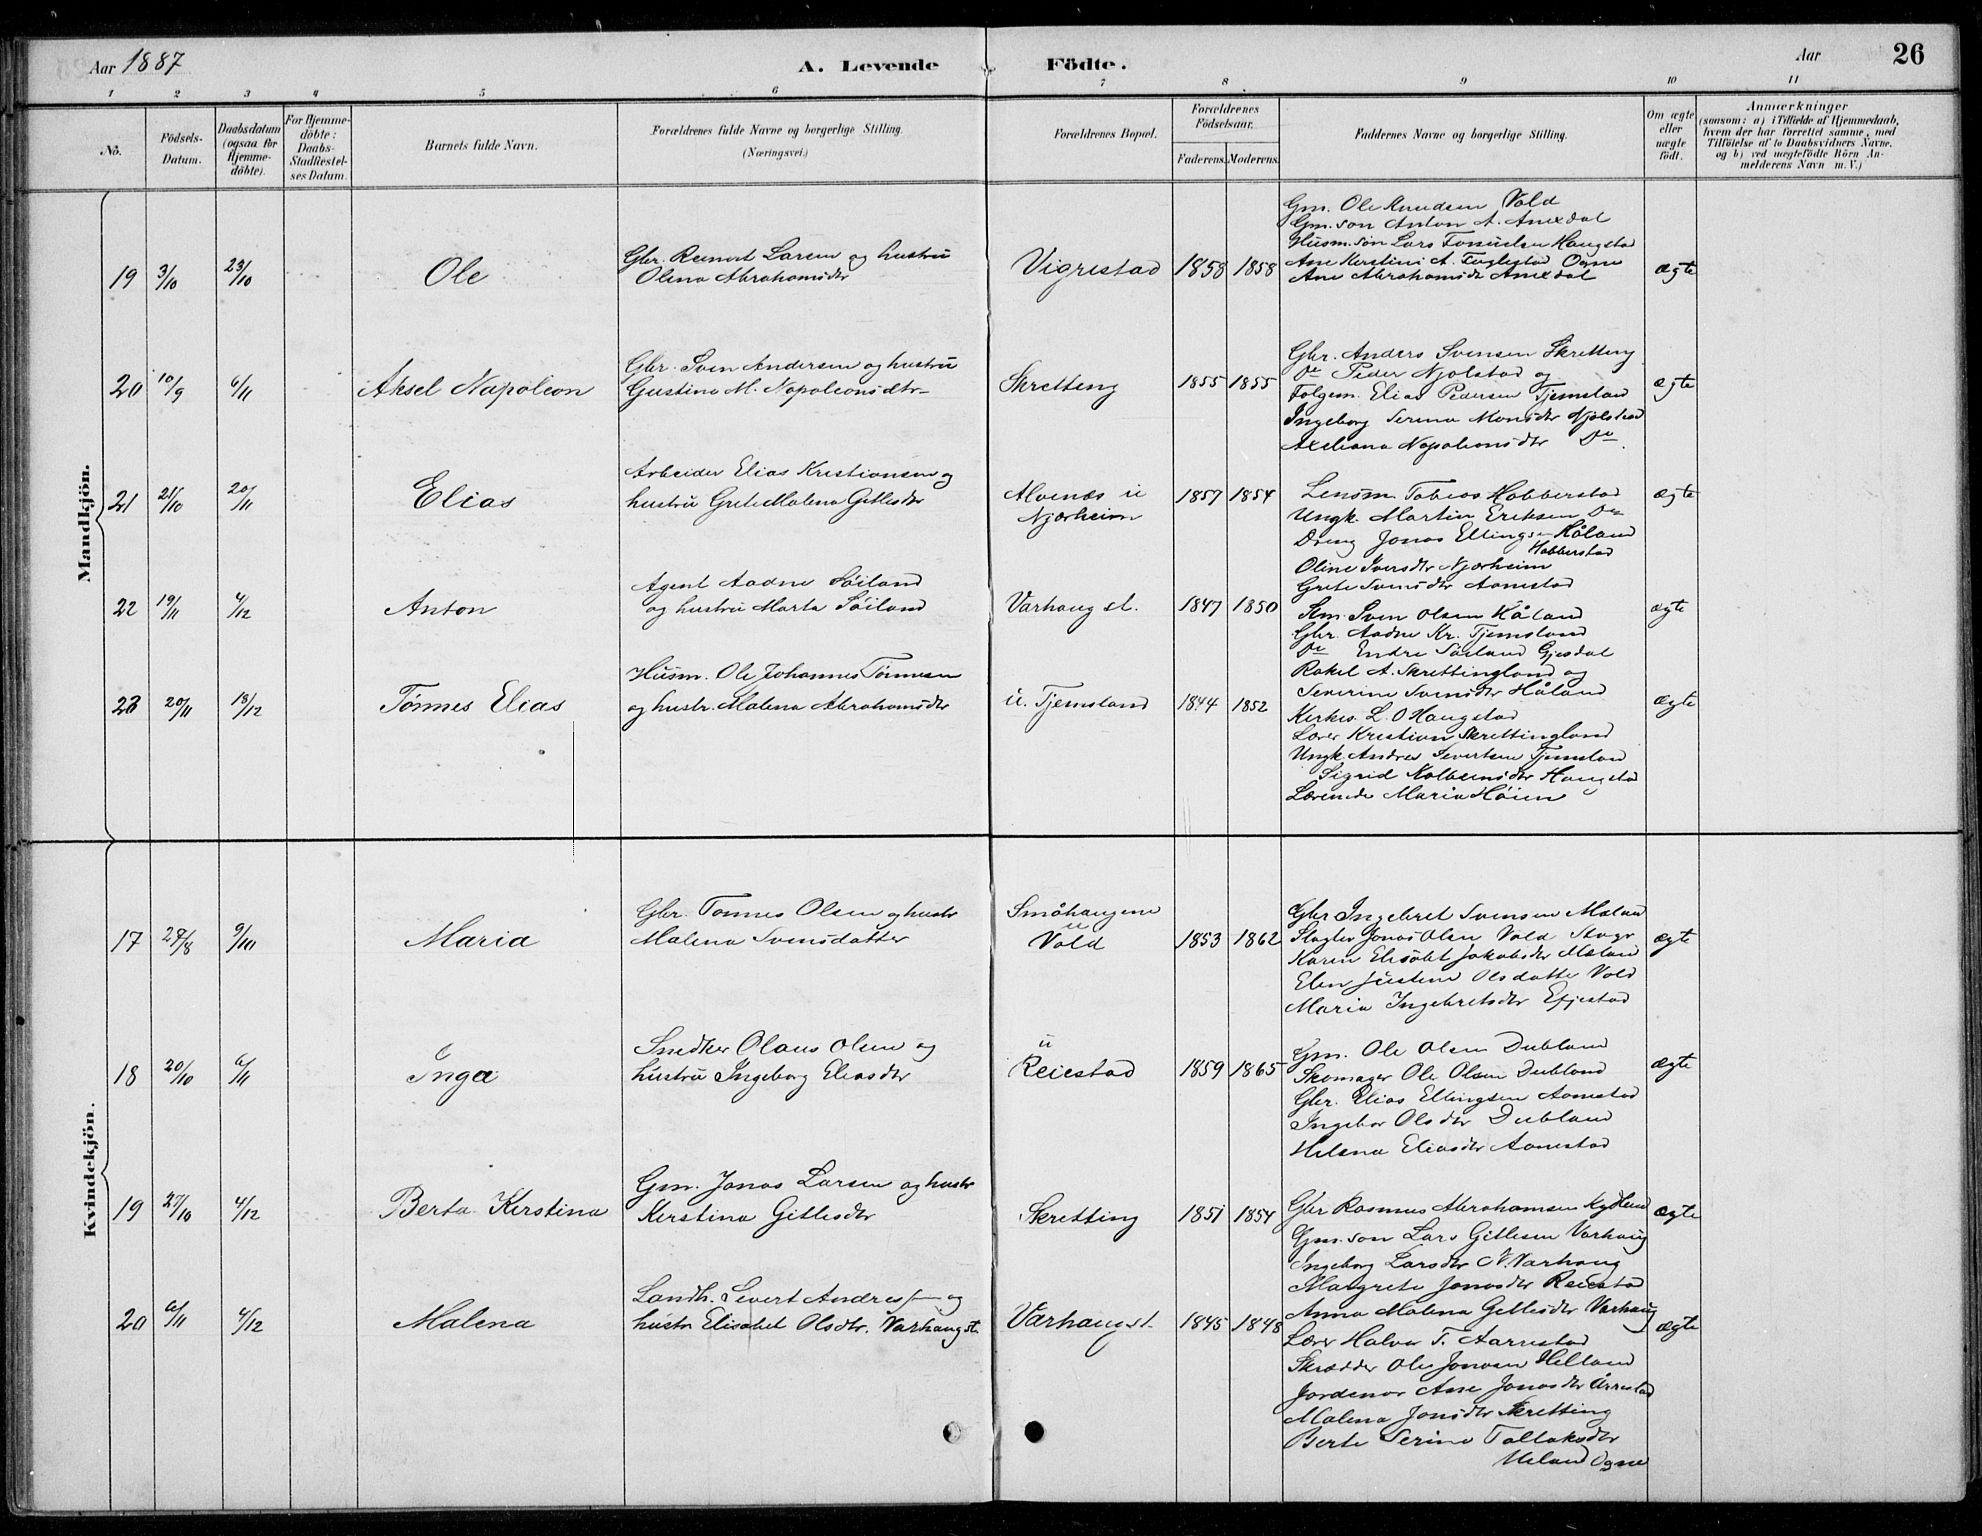 Aar 1887
A. Levende Fødte.
Aar
26
1 2 3 4 5 6 7 8 9 10 11
No.
Födsels-Datum.
Daabsdatum (ogsaa for Hjemme-döbte).
For Hjemme-döbte: Daabs-Stadfæstel-ses Datum.
Barnets fulde Navn.
Forældrenes fulde Navne og borgerlige Stilling. (Næringsvei.)
Forældrenes Bopæl.
Forældrenes Födselsaar.
Faderens. Moderens.
Faddernes Navne og borgerlige Stilling.
Om ægte eller uægte födt.
Anmærkninger
(saasom: a) i Tilfælde af Hjemmedaab,
hvem der har forrettet samme, med
Tilföielse af to Daabsvidners Navne,
og b) ved uægtefödte Börn An-
melderens Navn m. V.)
Mandkjön.
19 3/10 23/10 Ole
Gbr. Reinert Larsen og hustru
Olena Abrahamsdtr
Vigrestad 1858 1858
Gm. Ole Knudsen Vold
Gm. søn Anton A. Anexdal
Husm. søn Lars Tønnesen Haugstad
Ane Kerstine A. Fuglestad Ogne
Ane Abrahamsdtr Anexdal
ægte
20 10/9 6/11 Aksel Napoleon
Gbr. Sven Andersen og hustru
Gustina M. Napoleonsdtr
Skretting 1855 1855
Gbr. Anders Svensen Skretting
Do Peder Njølstad og
Folgem. Elias Pedersen Tjemsland
Ingeborg Serina Monsdtr Njølstad
Axeliana Napoleonsdtr Do
ægte
21 21/10 20/11 Elias
Arbeider Elias Kristiansen og
hustru Grete Malena Gitlesdtr
Alvenæs u
Njærheim
1857 1854
Lensm. Tobias Habberstad
Ungk. Martin Eriksen Do
Dreng Jonas Ellings. Håland
Habberstad
Oline Iversdtr Njærheim
Grete Svensdtr Aanestad
ægte
22 19/11 4/12 Anton
Agent Aadne Søiland
og hustru Marta Søiland
Varhaug st. 1847 1850
Sven Olsen Håland
Gbr. Aadne Kr. Tjemsland
Do Endre Søiland Gjesdal
Rakel A. Skrettingland og
Severine Svensdtr Håland
ægte
23 20/11 18/12 Tønnes Elias
Husm. Ole Johannes Tønnesen
og hustr. Malena Abrahamsdtr
u. Tjemsland 1844 1852
Kerkes. L. O Haugstad
Lærer Kristian Skrettingland
Ungk. Andreas Sivertsen Tjemsland
Sigrid Kolbeinsdtr Haugstad
Lærerinde Maria Høien
ægte
Kvindekjön.
17 28/8 9/10 Maria
Gbr. Tønnes Olsen og hustr
Malena Svensdatter
Småhaugene
u
Vold
1853 1862
Gbr Ingebret Svensen Mæland
Slagter Jonas Olsen Vold Stvgr
Karen Elisabet Jakobsdtr Mæland
Elen Justine Olsdatter Vold
Maria Ingebretsdtr Efjestad
ægte
18 20/10 6/11 Inga
Snedker Olaus Olsen og
hustru Ingeborg Eliasdtr
u
Reiestad
1859 1865
Gm. Ole Olsen Dubland
Skomager Ole Olsen Dubland
Gbr. Elias Ellingsen Aanestad
Ingebor Olsdtr Dubland
Helena Eliasdtr Aanestad
ægte
19 27/10 4/12 Berta Kerstina
Gm. Jonas Larsen og hustr
Kerstina Gitlesdtr
Skretting 1851 1854
Gbr Rasmus Abrahamsen Kydland
Gm. søn Lars Gitlesen Varhaug
Ingeborg Larsdtr N. Varhaug
Margrete Jonasdtr Reiestad
Anna Malena Gitlesdtr Varhaug
ægte
20 6/11 4/12 Malena
Landh. Severt Andreas og
hustr Elisabet Olsdtr. Varhaug st.
Varhaug st. 1845 1848
Lærer Halvor T. Aarrestad
Skrædder Ole Jonasen Helland
Jordemor Ane Jonasdtr Årrestad
Malena Jonsdtr Skretting
Berte Serine Tollaksdtr
Ogne
ægte